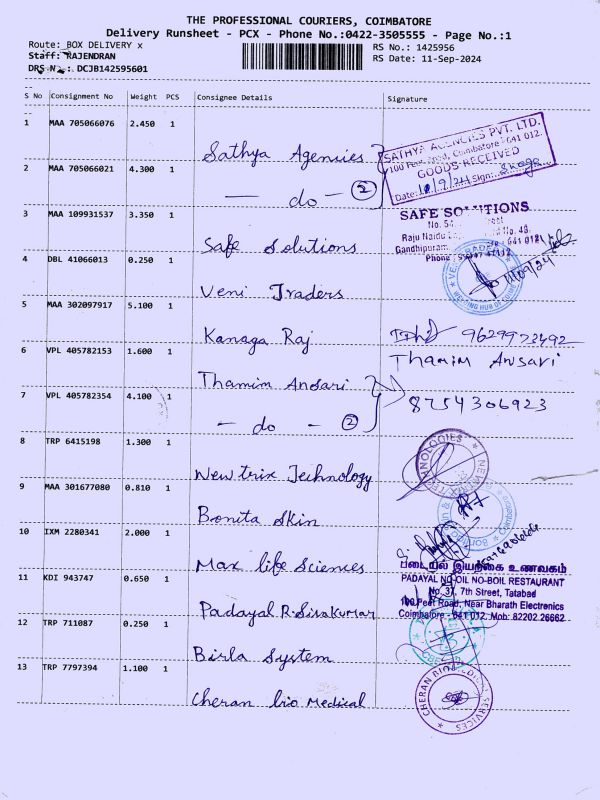 THE PROFESSIONAL COURIERS, COIMBATORE
Delivery Runsheet - PCX - Phone No.:0422-3505555 - Page No.:1
Route: BOX DELIVERY x
RS No.: 1425956
Staff: RAJENDRAN
RS Date: 11-Sep-2024
DRS No.: DCJB142595601
S No Consignment No Weight PCS Consignee Details Signature
1 MAA 705066076 2.450 1 Sathya Agensies
SATHYA AGENCIES PVT. LTD.
100 Feet Road, Coimbatore - 641 012.
GOODS RECEIVED
Date: Sign:
2 MAA 705066021 4.300 1 — do — 2
3 MAA 109931537 3.350 1 Safe Solutions
SAFE SOLUTIONS
Raju Naidu No. 48,
Gandhipuram, - 641 012
Phone :
4 DBL 41066013 0.250 1 Veni Traders
11/09/24
5 MAA 302097917 5.100 1 Kanaga Raj
9629973492
6 VPL 405782153 1.600 1 Thamim Ansari
Thamim Ansari
7 VPL 405782354 4.100 1 — do — 2
8754306923
8 TRP 6415198 1.300 1 New trix Technology
9 MAA 301677080 0.810 1 Bonita Skin
10 IXM 2280341 2.000 1 Max life Sciences
11 KDI 943747 0.650 1 Padayal R. Sivakumar
படையல் இயற்கை உணவகம்
PADAYAL NO-OIL NO-BOIL RESTAURANT
No. 37, 7th Street, Tatabad
100 Feet Road, Near Bharath Electronics
Coimbatore - 641 012. Mob: 82202 26662
12 TRP 711087 0.250 1 Birla System
13 TRP 7797394 1.100 1 Cheran bio Medical
CHERAN BIO MEDICAL SERVICES